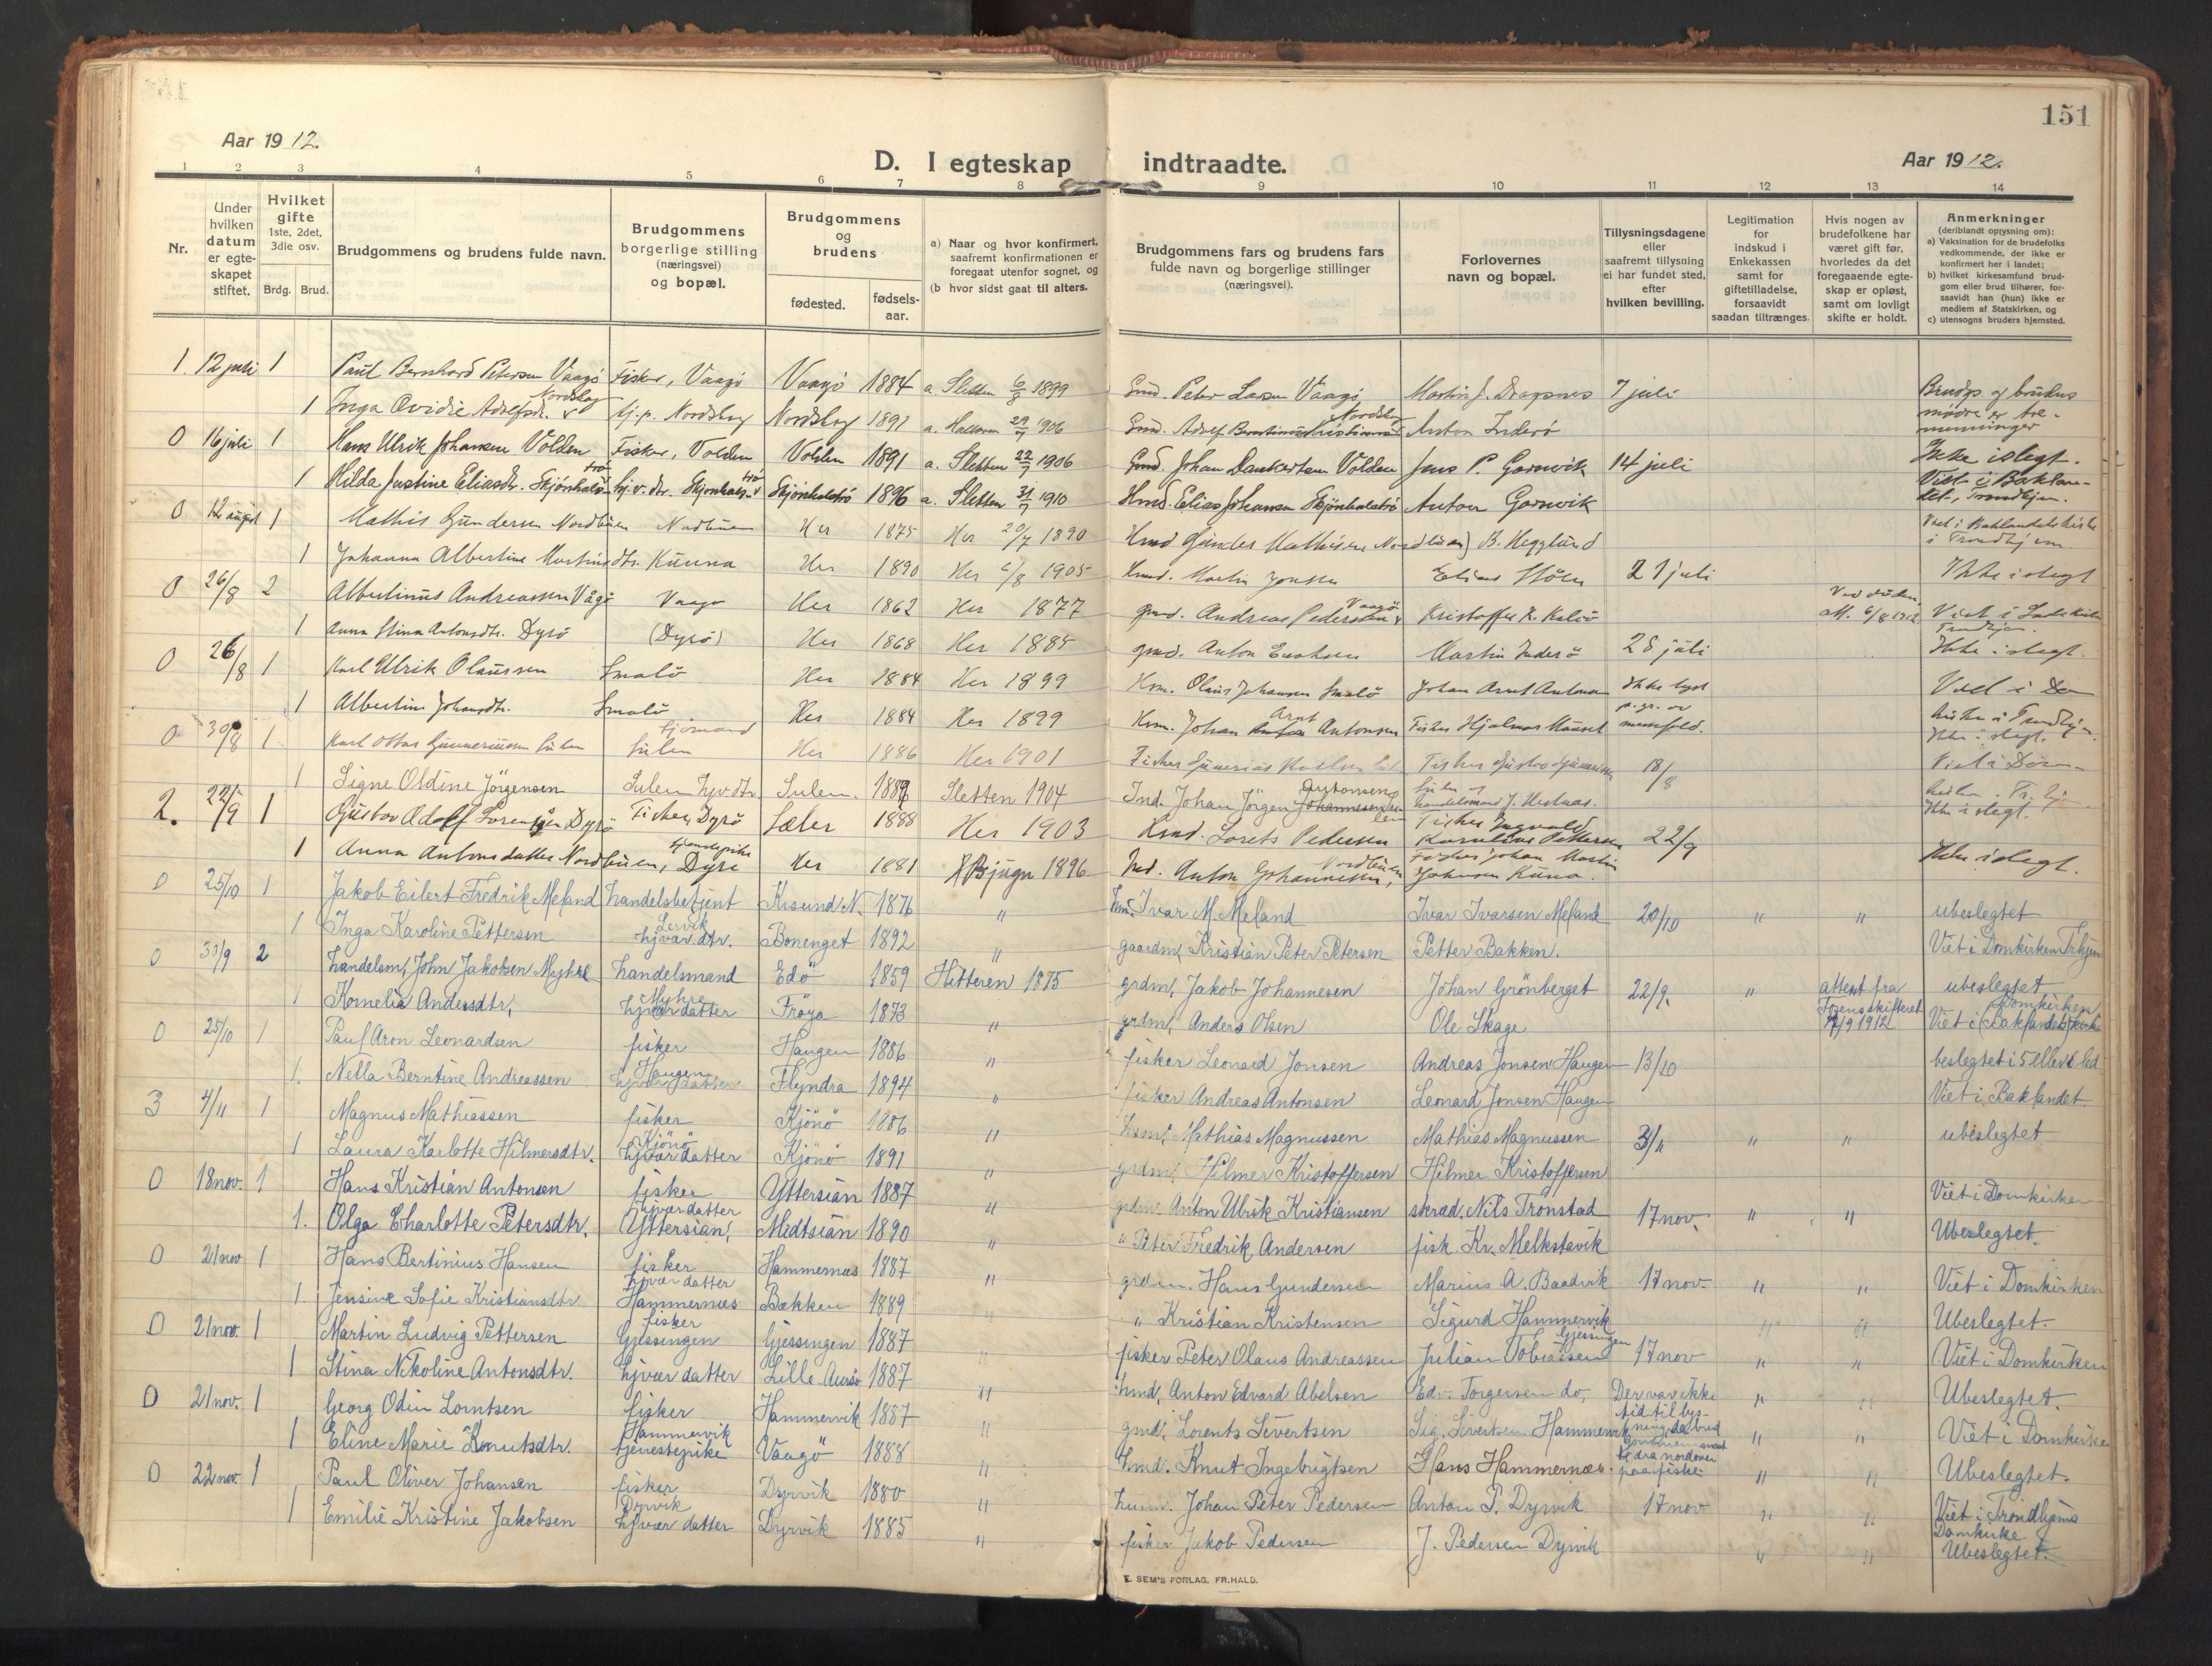 151
Aar 1912.
D. I egteskap indtraadte.
Aar 1912.
1 2 3 4 5 6 7 8 9 10 11 12 13 14
Nr.
Under hvilken datum er egteskapet stiftet.
Hvilket gifte 1ste, 2det, 3die osv.
Brdg. Brud.
Brudgommens og brudens fulde navn.
Brudgommens borgerlige stilling (næringsvei) og bopæl.
Brudgommens og brudens
fødested. fødselsaar.
a) Naar og hvor konfirmert, saafremt konfirmationen er foregaat utenfor sognet, og
(b hvor sidst gaat til alters.
Brudgommens fars og brudens fars fulde navn og borgerlige stillinger (næringsvei).
Forlovernes navn og bopæl.
Tillysningsdagene eller saafremt tillysning ei har fundet sted, efter hvilken bevilling.
Legitimation for indskud i Enkekassen samt for giftetilladelse, forsaavidt saadan tiltrænges.
Hvis nogen av brudefolkene har været gift før, hvorledes da det foregaaende egteskap er opløst, samt om lovligt skifte er holdt.
Anmerkninger (deriblandt opjysning om):
a) Vaksination for de brudefolks vedkommende, der ikke er konfirmert her i landet;
b) hvilket kirkesamfund brudgom eller brud tilhører, forsaavidt han (hun) ikke er medlem af Statskirken, og
c) utensogns bruders hjemsted.
1. 12 juli 1 Paul Bernhard Petersen Vaagö Fisker, Vaagö Vaagö 1884 a. Sletten 6/8 1899 Gmd. Peter Larsen Vaagö Martin J. Dragsnes 7 juli Brudg. og brudens mødre er tremenninger
1 Inga Ovidie Adolfsdr. Nordskag hj.p. Nordskag Nordskag 1891 a. 1906 Gmd. Adolf Kristiansen Nordskag Anton Inderö
0 16 juli 1 Hans Ulrik Johansen Volden Fisker, Volden Volden 1891 a. Sletten 22/7 1906 Gmd. Johan Dankertsen Volden Jens P. Gornvik 14 juli Ikke i slegt.
1 Hilda Justine Eliasdr. Skjönhalsö hj.v. dtr. 1896 a. Sletten 31/7 1910 Hmd. Elias Johansen Anton Gornvik Viet i Baklandet, Trondhjem.
0 12 august 1 Mathis Gundersen Nordbuen Nordbuen Her 1875 Her 20/7 1890 Hmd Gunder Mathisen Nordbuen B. Hegglund Viet i Baklandets kirke i Trondhjem
1 Johanna Albertine Martinsdtr. Kunna Her 1890 Her 6/8 1905 Hmd. Martin Jensen Elias Stölen 21 juli Ikke i slegt
0 26/8 2 Albertinus Andreassen Vågö Vaagö Her 1862 Her 1877 gmd. Andreas Pedersen Vaagö Kristoffer K. Kalvö Ved döden, att. 6/8 1912 Viet i
1 Anna Stina Antonsdtr. Dyrö (Dyrö) Her 1868 Her 1885 gmd. Anton Enoksen Martin Inderö 28 juli Ikke i slegt.
0 26/8 1 Karl Ulrik Olaussen Smalö Her 1884 Her 1899 Hsm. Olaus Johansen Smalö Johan Arnt Antonsen Ikke lyst p. gr. av Viet i Dom
1 Albertine Johansdtr. Smalö Her 1884 Her 1899 Hsm. Johan Arnt Antonsen Fisker Hjalmar kirken i Trondhjem. Ikke i slegt.
0 30/8 1 Karl Ottar Gunneriussen Sulen Sjömand Sulen Her 1886 Her 1901 Fisker Gunerius Fisker Gustav 18/8 Viet i Dom
1 Signe Oldine Jörgensen Sulen hjv. dtr Sulen 1889 Sletten 1904 Ind. Johan Jörgen Antonsen Sulen handelsmand J. kirken. Tr.hjem Ikke i slegt.
2. 22/9 1 Gustav Adolf Dyrö Fisker, Dyrö Sæter 1888 Her 1903 Hmd. Lorets Pedersen Fisker Ingvald 22/9
1 Anna Antonsdatter Nordbuen, tjenestepike Dyrö Her 1881 Bjugn 1896 Ind. Anton Johannessen, Nordbuen Fisker Johan Martin Johnsen Kuna. Ikke i slegt.
0 25/10 1 Jakob Eilert Fredrik Meland handelsbetjent Krsund N. 1876 " Hm. Ivar M. Meland Ivar Ivarsen Meland 20/10 " " ubeslegtet
1 Inga Karoline Pettersen Lervik hjvær. dtr. Bonenget 1892 " gaardm. Kristian Peter Petersen Petter Bakken. Viet i Domkirken Trhjem
0 30/9 2 handelsm, John Jakobsen Myhre handelsmand Edö 1859 Hitteren 1875 grdm, Jakob Johannesen Johan Grönberget 22/9. " attest fra Fosens skifteret 1912 ubeslegtet
1 Kornelia Andersdtr, Myhre hjvær datter Fröya 1873 " grdm, Anders Olsen Ole Skage Viet i (Baklandet) Domkirken
0 25/10 1 Paul Aron Leonardsen fisker Haugen 1886 " fisker Leonard Jonsen Andreas Jonsen Haugen 13/10 beslegtet i 5 eller 6 led
1. Nella Berntine Andreassen Haugen hjvær datter Flyndra 1894 " fisker Andreas Antonsen Leonard Jonsen Haugen Viet i Baklandet.
3 4/11 1 Magnus Mathiassen fisker Kjönö 1886 " hsm, Mathias Magnussen Mathias Magnussen 3/11 " " ubeslegtet
1 Laura Karlotte Hilmersdtr. Kjönö hjvær datter Kjönö 1891 " grdm, Hilmer Kristoffersen Hilmer Kristoffersen
0 18 nov. 1 Hans Kristian Antonsen fisker Yttersian 1887 " grdm. Anton Ulrik Kristiansen skræd. Nils Trönstad 17 nov. " " Viet i Domkirken
1. Olga Charlotte Petersdtr. hjvær datter Yttersian, Midtsian 1890 " " Peter Fredrik Andersen fisk. Kr. Melkstavik Ubeslegtet.
0 21 nov 1 Hans Bertinius Hansen fisker Hammernæs 1887 " grdm. Hans Gundersen Marius A. Baadvik 17 nov. " " Viet i Domkirken
1. Jensine Sofie Kristiansdtr hjvær datter Hammernæs Bækken 1889 " " Kristian Kristensen Sigurd Hammervik " " Ubeslegtet.
0 21 nov. 1 Martin Ludvig Pettersen fisker Gjessingen Gjessingen 1887 " fisker Peter Olaus Andreassen Julian Tobiassen Gjessingen 17 nov " " Viet i Domkirken
1 Stina Nikoline Antonsdtr. hjvær datter Lille-Aursö 1887 " hmd, Anton Edvard Abelsen Edv. Torgersen do, " " Ubeslegtet.
0 21 nov. 1 Georg Odin Lorntsen fisker Hammervik 1887 " gmd, Lorents Sivertsen Sig. Sivertsen Hammervik Der var ikke tid til lysning, da brudgommen snart " " Viet i Domkirken
1 Eline Marie Knutsdtr. Hammervik tjenestepike Vaagö 1888 " hmd. Knut Ingebrigtsen Hans Hammernæs. dra nordover paa fiske " " Ubeslegtet.
0 22 nov. 1 Paul Oliver Johansen fisker Dyrvik 1880 " husm. Johan Peter Pedersen Anton P. Dyrvik 17 nov " " Viet i Trondhjems Domkirke
1 Emilie Kristine Jakobsen Dyrvik hjvær datter Dyrvik 1885 " fisker Jakob Pedersen J. Pedersen Dyrvik " " Ubeslegtet.
E. SEM'S FORLAG. FR.HALD.